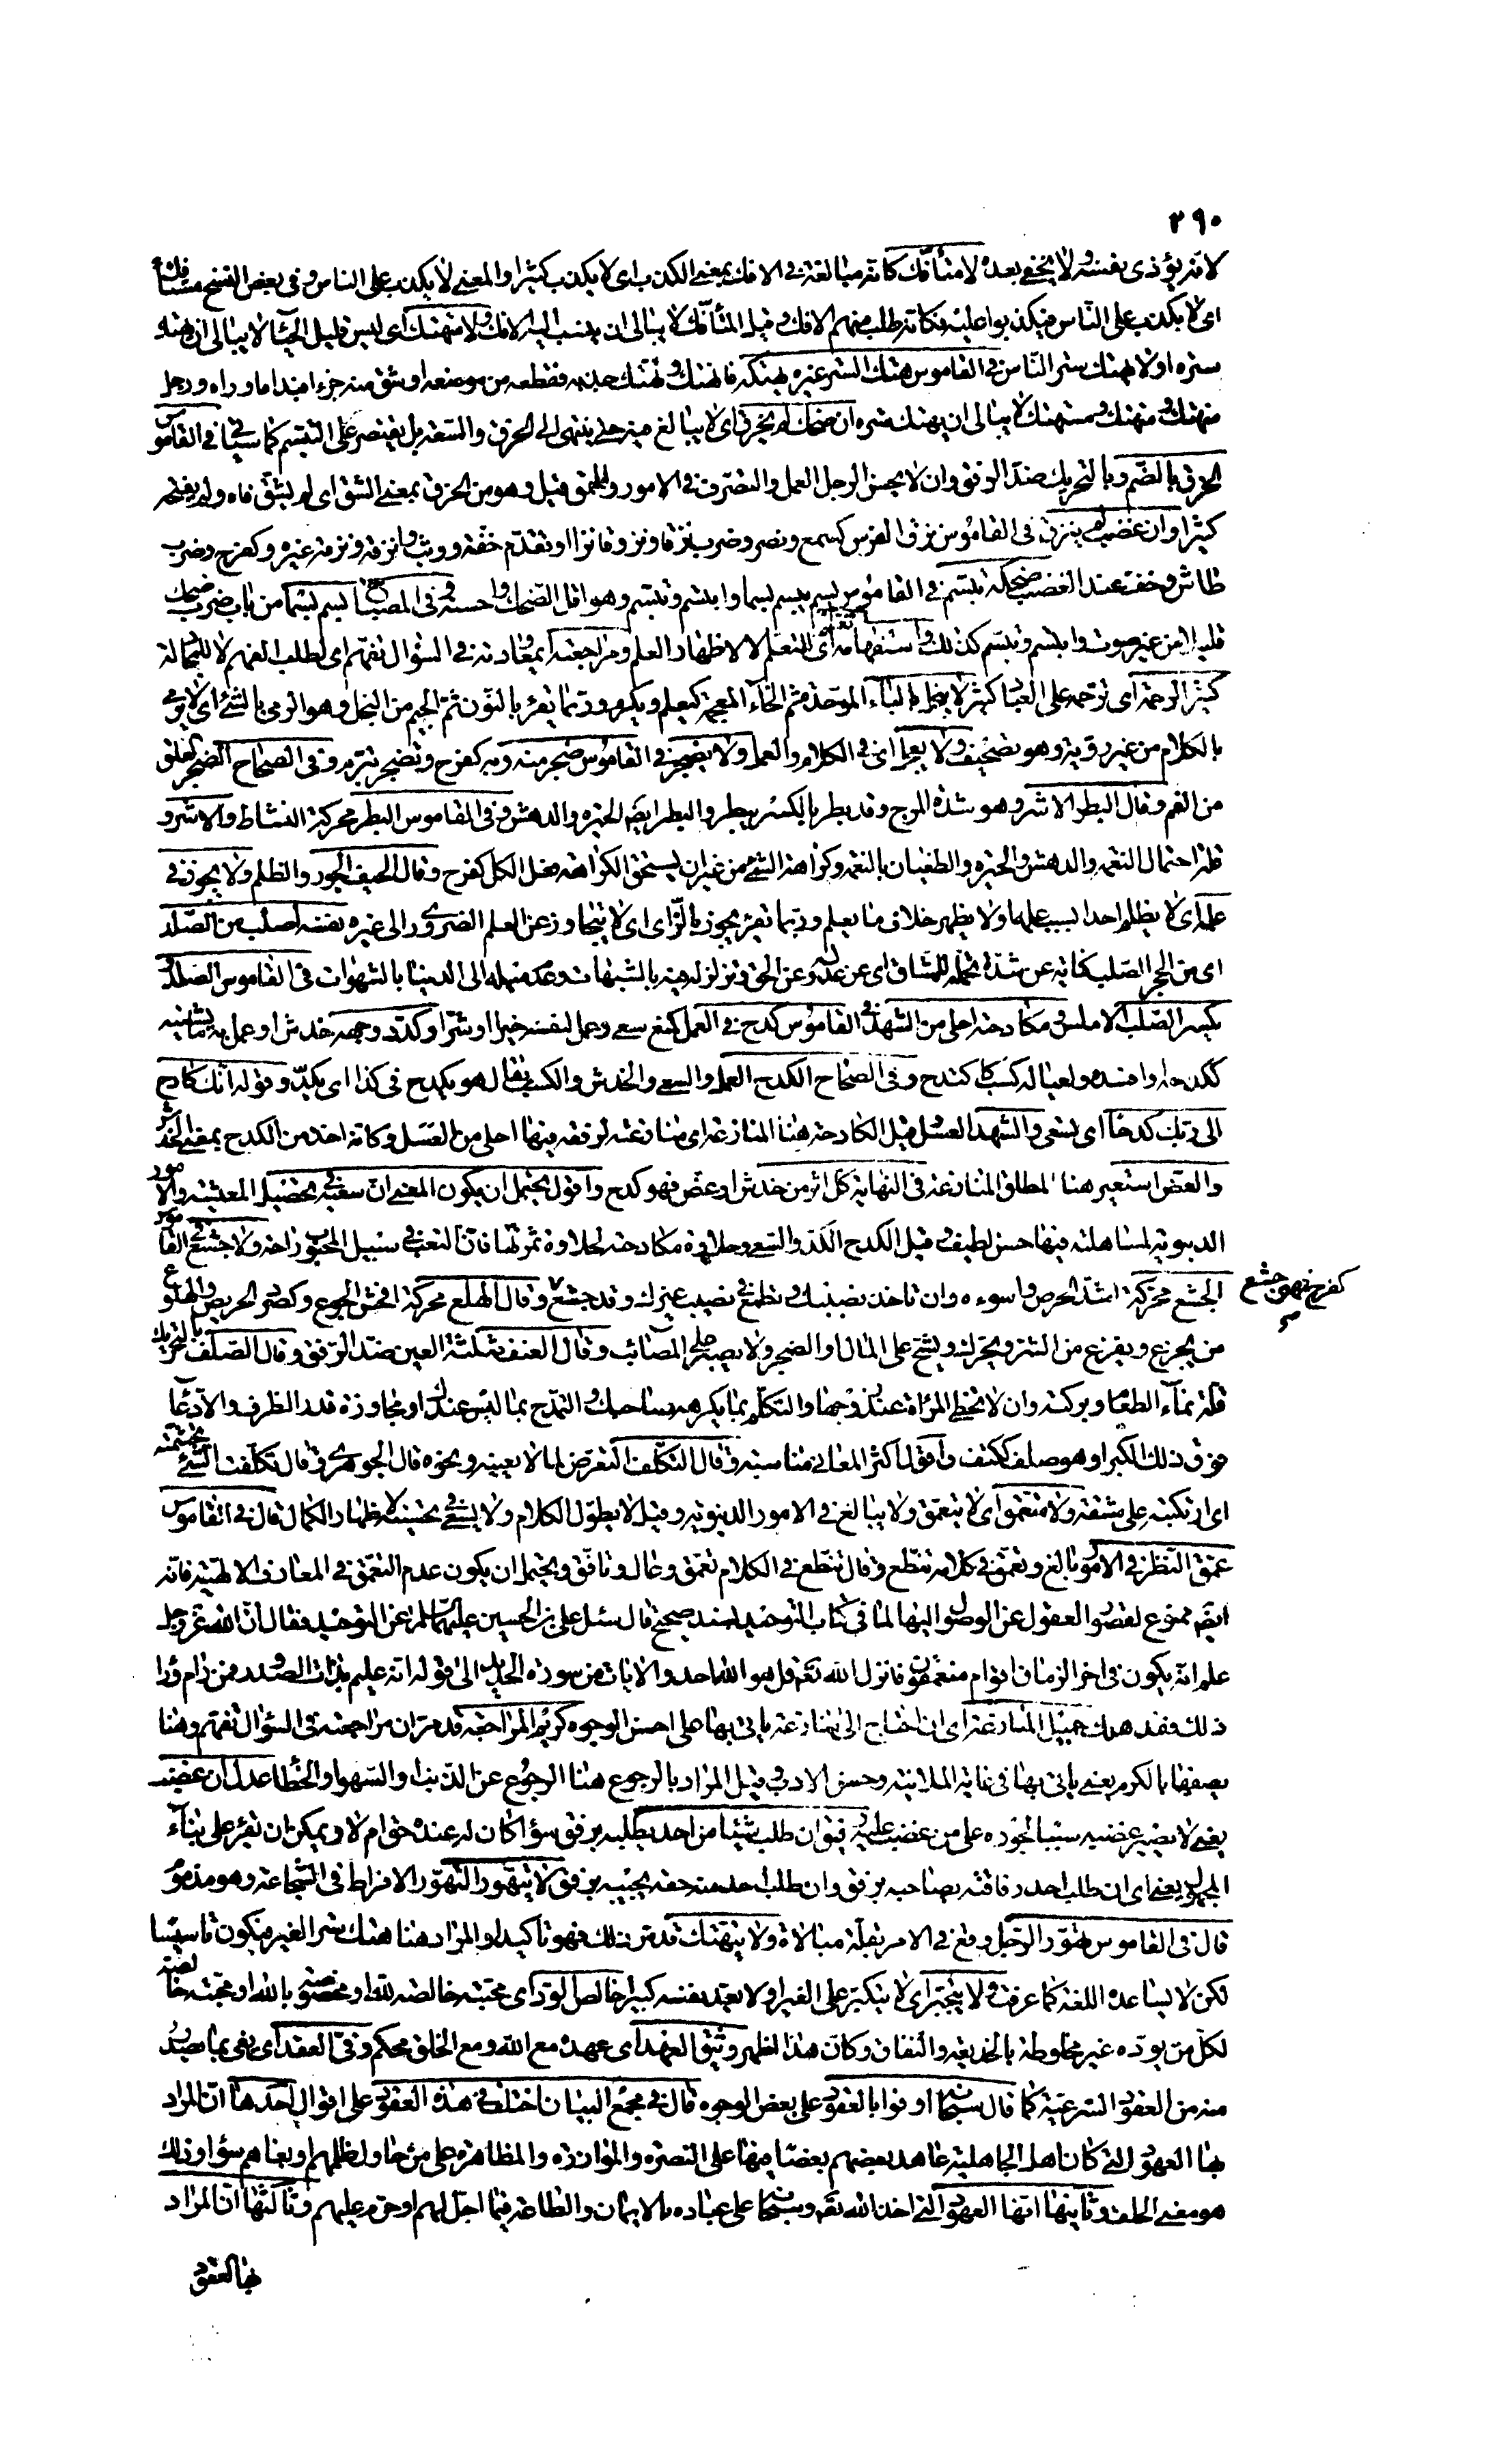 ٢٩٠
لانه يؤذى نفسه ولا يخفى بعده لا متأفك كانه مبالغة فى الافك بمعنى الكذب اى لا يكذب كثيرا والمعنى لا يكذب على الناس وفى بعض النسخ مستأفك
اى لا يكذب على الناس فيكذبوا عليه فكانه طلب منهم الافك وقيل المتأفك لا يبالى ان ينسب اليه الافك ولا متهتك اى ليس قليل الحياء لا يبالى ان يهتك
ستره او لا يهتك ستر الناس فى القاموس هتك الستر وغيره يهتكه فانهتك وتهتك جذبه فقطعه من موضعه او شق منه جزء افبدا ما وراه ورجل
منهتك ومتهتك ومستهتك لا يبالى ان يهتك ستره ان ضحك لم يخرق اى لا يبالغ فيه حتى ينتهى الى الخرق والسفه بل يقتصر على التبسم كما سيأتى فى القاموس
الخرق بالضم وبالتحريك ضد الرفق وان لا يحسن الرجل العمل والتصرف فى الامور والحمق قيل وهو من الخرق بمعنى الشق اى لم يشق فاه ولم يفتحه
كثيرا وان غضب لم ينزق فى القاموس نزق الفرس كسمع ونصر وضرب نزقا ونزوقا نزا او تقدم خفة ووثب وانزقه ونزقه غيره وكفرح وضرب
طاش وخف عند الغضب ضحكه تبسم فى القاموس بسم يبسم بسما وابتسم وتبسم وهو اقل الضحك واحسنه وفى المصباح بسم بسما من باب ضرب ضحك
قليلا من غير صوت وابتسم وتبسم كذلك واستفهامه تعلم اى للتعلم لا لاظهار العلم ومراجعته اى معاودته فى السؤال تفهم اى لطلب الفهم لا للمجادلة
كثير الرحمة اى ترحمه على العباد كثير لا يبخل بالباء الموحدة ثم الخاء المعجمة كيعلم ويكرم وربما يقرء بالنون ثم الجيم من النجل وهو الرمى بالشئ اى لا يرمى
بالكلام من غير روية وهو تصحيف ولا يعجل اى فى الكلام والعمل ولا يضجر فى القاموس ضجر منه وبه كفرح وتضجر تبرم وفى الصحاح الضجر القلق
من الغم وقال البطر الاشر وهو شدة المرح وقد بطر بالكسر يبطر والبطر ايضا الحيرة والدهش وفى القاموس البطر محركة النشاط والاشر و
قلة احتمال النعمة والدهش والحيرة والطغيان بالنعمة وكراهة الشئ من غير ان يستحق الكراهة فعل الكل كفرح وقال الحيف الجور والظلم ولا يجور فى
علمه اى لا يظلم احدا بسبب علمه او لا يظهر خلاف ما يعلم وربما يقرء يجوز بالزاى اى لا يتجاوز عن العلم الضرورى الى غيره نفسه اصلب من الصلد
اى من الحجر الصلب كناية عن شدة تحمله للمشاق اى عن عدوله عن الحق وتزلزله فيه بالشبهات وعدم ميله الى الدنيا بالشهوات فى القاموس الصلد و
يكسر الصلب الاملس ومكادحته احلى من الشهد فى القاموس كدح فى العمل كمنع سعى وعمل لنفسه خيرا او شرا وكد ووجهه خدش او عمل به ما يشينه
ككدحه او افسده ولعياله كسب كاكتدح وفى الصحاح الكدح العمل والسعى والخدش والكسب يقال هو يكدح فى كذا اى يكد وقوله انك كادح
الى ربك كدحا اى تسعى والشهد العسل قيل الكادحة هنا المنازعة اى منازعته لرفقه فيها احلى من العسل وكانه اخذ من الكدح بمعنى الخدش
والعض استعير هنا لمطلق المنازعة فى النهاية كل اثر من خدش او عض فهو كدح واقول يحتمل ان يكون المعنى ان سعيه فى تحصيل المعيشة والامور
الدنيوية لمساهلته فيها حسن لطيف وقيل الكدح الكد والسعى وحلاوة مكادحته لحلاوة ثمرتها فان التعب فى سبيل المحبوب راحة ولا جشع فى القاموس
الجشع محركة اشد الحرص واسوءه وان تأخذ نصيبك وتطمع فى نصيب غيرك وقد جشع وقال الهلع محركة افحش الجزع وكصرد الحريص والهلوع
كفرح فهو جشع صح
من يجزع ويفزع من الشر ويحرص ويشح على المال او الضجور لا يصبر على المصائب وقال العنف مثلثة العين ضد الرفق وقال الصلف بالتحريك
قلة نماء الطعام وبركته وان لا تحظى المرأة عند زوجها والتكلم بما يكرهه صاحبك والتمدح بما ليس عندك او مجاوزة قدر الظرف والادعاء
فوق ذلك تكبرا وهو صلف ككتف واقول اكثر المعانى مناسبة وقال التكلف التعرض لما لا يعنيه ونحوه قال الجوهرى وقال تكلفت الشئ تجشمته
اى ارتكبته على مشقة ولا متعمق اى لا يتعمق ولا يبالغ فى الامور الدنيوية وقيل لا يطول الكلام ولا يسعى فى تحسينه لاظهار الكمال قال فى القاموس
عمق النظر فى الامور بالغ وتعمق فى كلامه تنطع وقال تنطع فى الكلام تعمق وغالى وتأنق ويحتمل ان يكون عدم التعمق فى المعارف الالهية فانه
ايضا ممنوع لقصور العقول عن الوصول اليها لما فى كتاب التوحيد بسند صحيح قال سئل على بن الحسين عليهما السلم عن التوحيد فقال ان الله عز وجل
علم انه يكون فى اخر الزمان اقوام متعمقون فانزل الله تعالى قل هو الله احد والايات من سورة الحديد الى قوله انه عليم بذات الصدور فمن رام وراء
ذلك فقد هلك جميل المنازعة اى ان احتاج الى منازعة يأتى بها على احسن الوجوه كريم المراجعة قد مر ان مراجعته فى السؤال تفهم وهنا
يصفها بالكرم يعنى يأتى بها فى غاية الملاينة وحسن الادب وقيل المراد بالرجوع هنا الرجوع عن الذنب او السهو او الخطأ عدل ان غضب
يعنى لا يصير غضبه سببا لجوره على من غضب عليه رفيق ان طلب اى ان طلب شيئا من احد يطلبه برفق سواء كان له عنده حق ام لا ويمكن ان يقرء على بناء
المجهول يعنى اى ان طلب احد رفاقته يصاحبه برفق وان طلب احد منه حقه يجيبه برفق لا يتهور التهور الافراط فى الشجاعة وهو مذموم
قال فى القاموس تهور الرجل وقع فى الامر بقلة مبالاة ولا يتهتك قد مر ذلك فهو تأكيد او المراد هنا هتك ستر الغير فيكون تأسيسا
لكن لا يساعده اللغة كما عرفت ولا يتجبر اى لا يتكبر على الغير او لا يعد نفسه كبيرا خالص الود اى محبته خالصة لله او مخصوصة بالله او محبته خالصة
لكل من يوده غير مخلوطة بالخديعة والنفاق وكان هذا اظهر وثيق العهد اى عهده مع الله ومع الخلق محكم وفى العقد اى يفى بما يصدر
منه من العقود الشرعية كما قال سبحانه اوفوا بالعقود على بعض الوجوه قال فى مجمع البيان اختلف فى هذه العقود على اقوال احدها ان المراد
بها العهود التى كان اهل الجاهلية عاهد بعضهم بعضا فيها على النصرة والموازرة والمظاهرة على من حاول ظلمهم او بغاهم سوء او ذلك
هو معنى الحلف وثانيها انها العهود التى اخذ الله سبحانه على عباده بالايمان والطاعة فيما احل لهم او حرم عليهم وثالثها ان المراد
بها العقود